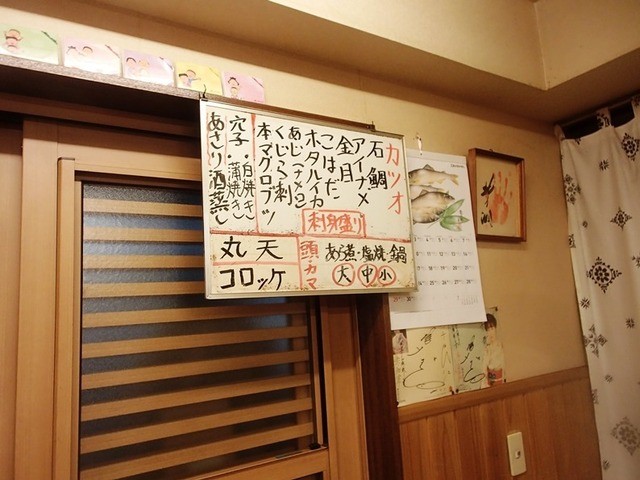 カツオ
石鯛
アイナメ
金目
こはだ
ホタルイカ
あじ(ナメロ)
くじら刺
本マグロブツ
穴子・白焼き・蒲焼き
あさり酒蒸し
刺身盛り
頭・カマ
あら煮・塩焼・鍋
大 中 小
丸天
コロッケ